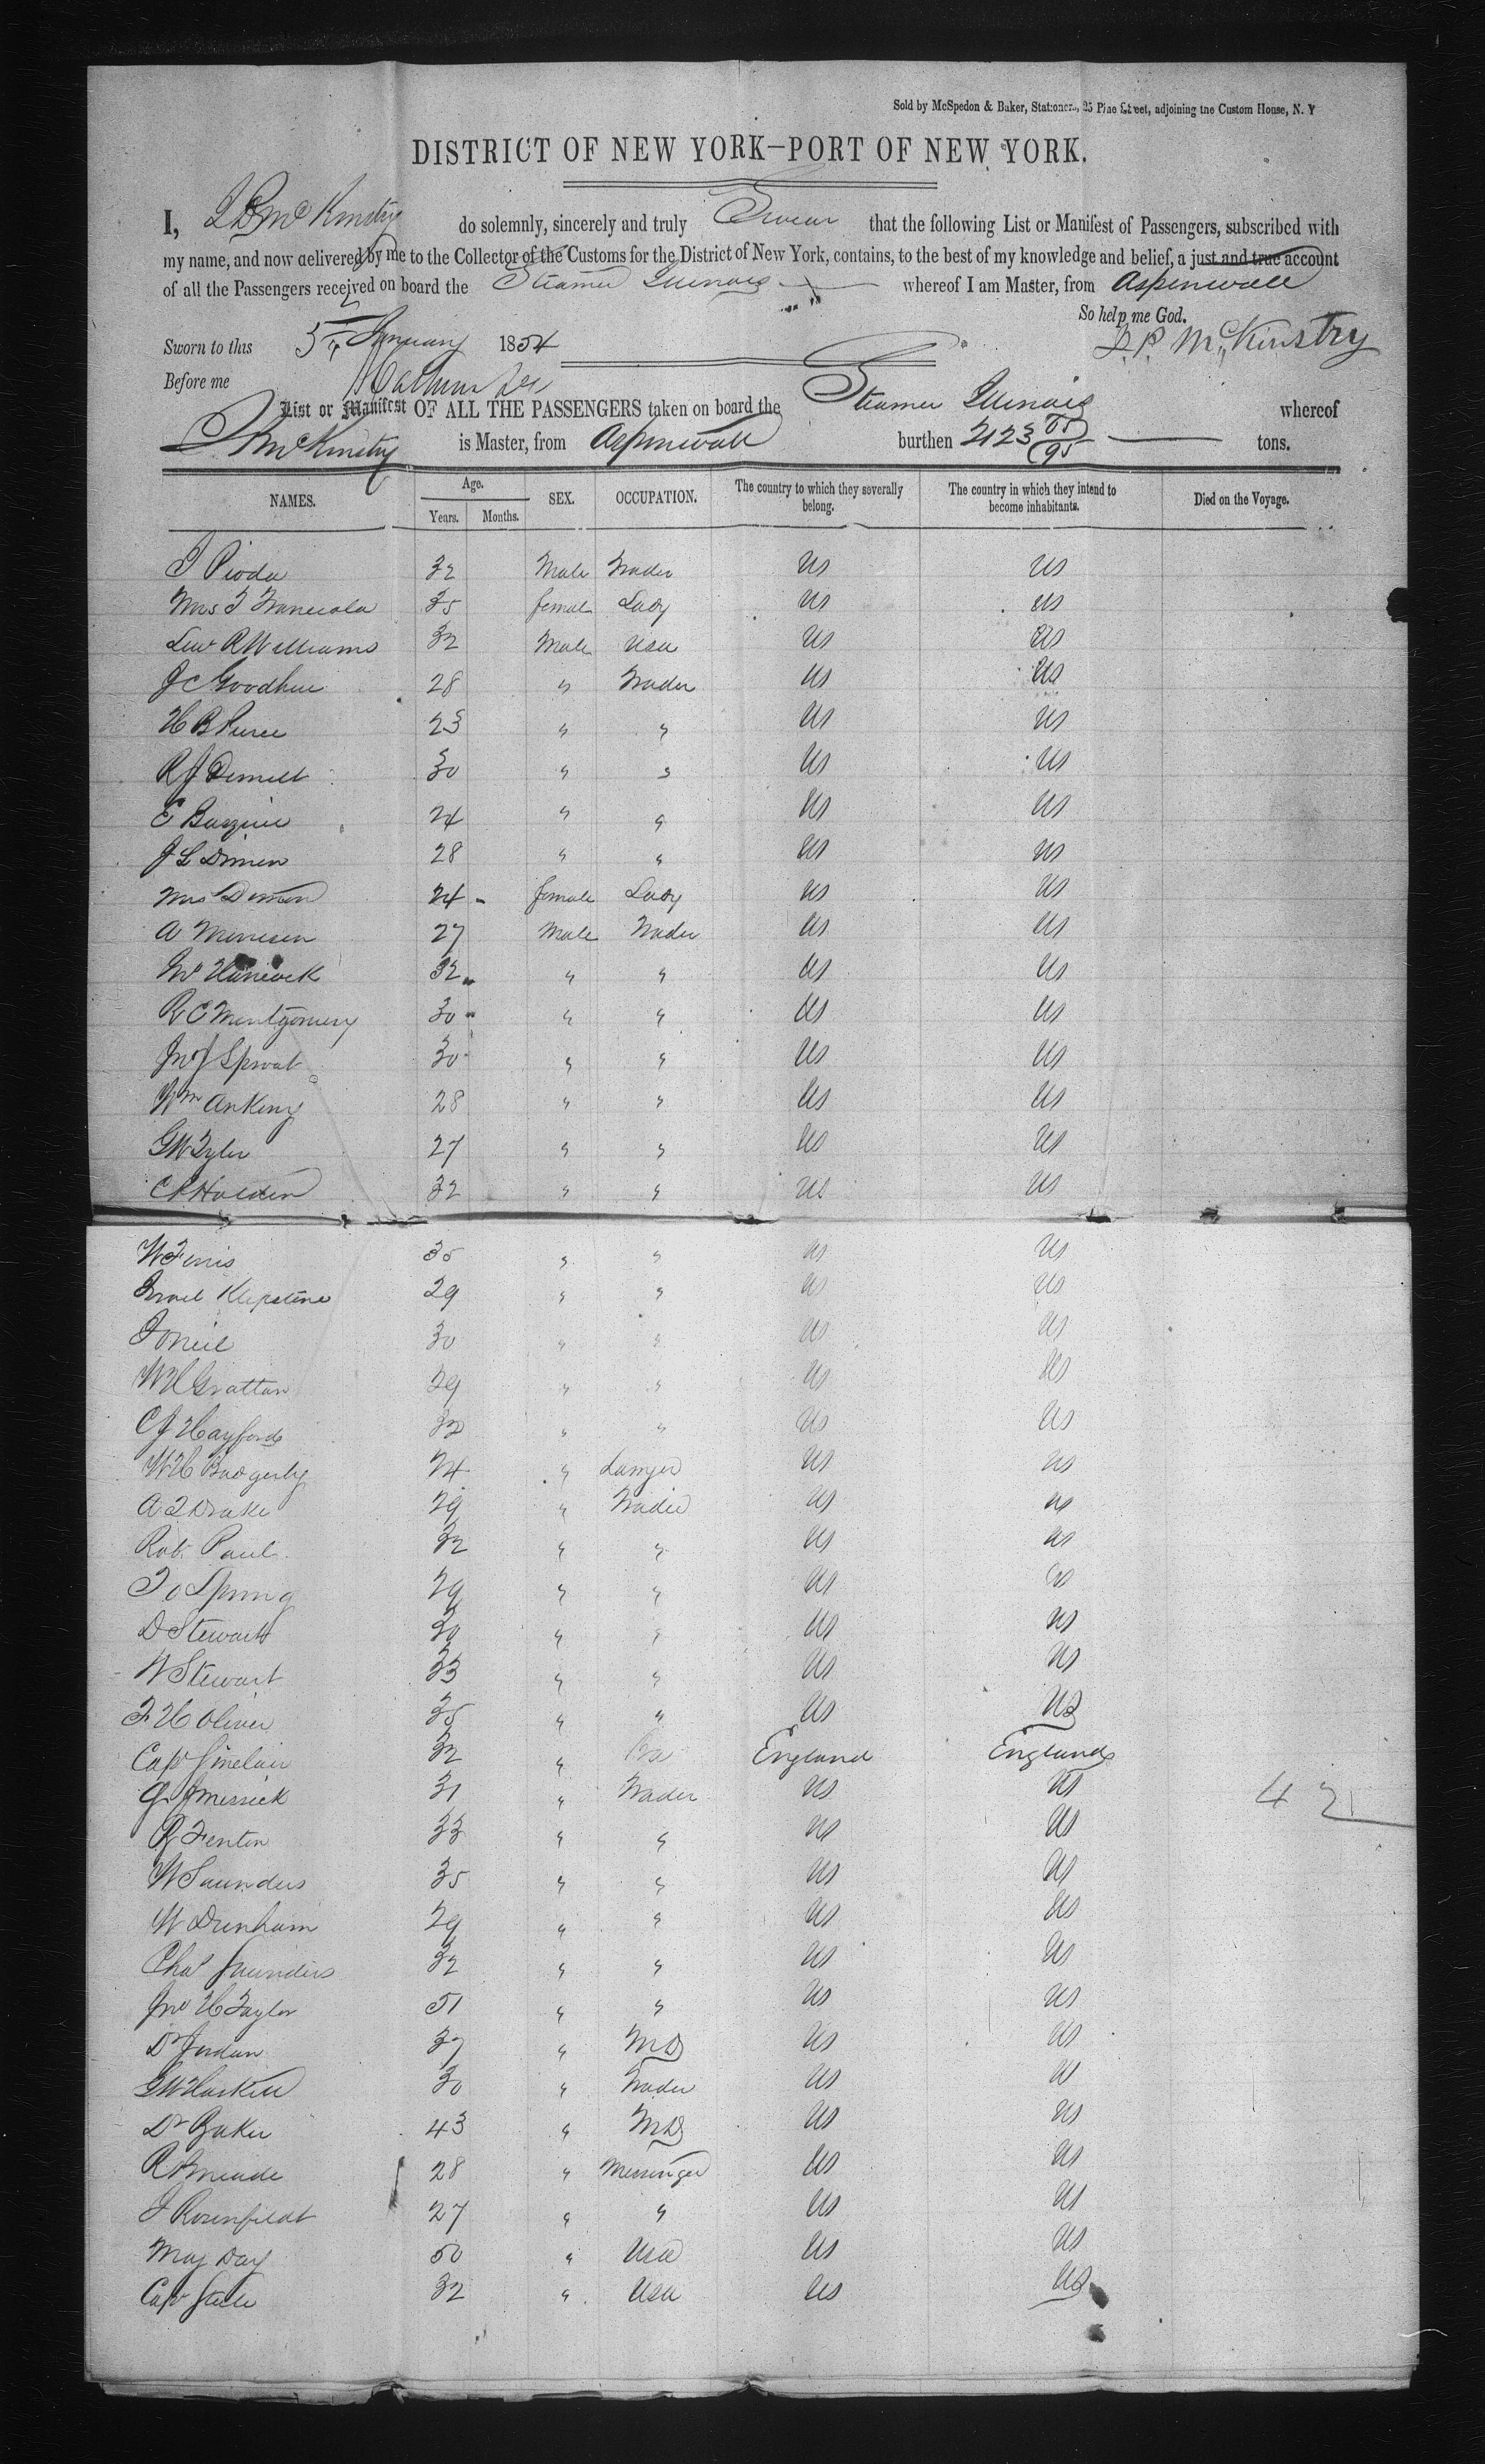 Sold by McSpedon & Baker, Stationers, 25 Pine Street, adjoining the Custom House, N. Y
DISTRICT OF NEW YORK—PORT OF NEW YORK.
I, McKinstry do solemnly, sincerely and truly Swear that the following List or Manifest of Passengers, subscribed with
my name, and now delivered by me to the Collector of the Customs for the District of New York, contains, to the best of my knowledge and belief, a just and true account
of all the Passengers received on board the Steamer Illinois whereof I am Master, from Aspinwall
So help me God.
Sworn to this 5th January 1854 McKinstry
Before me
List or Manifest OF ALL THE PASSENGERS taken on board the Steamer Illinois whereof
McKinstry is Master, from Aspinwall burthen 2123 tons.
NAMES. Age. SEX. OCCUPATION. The country to which they severally belong. The country in which they intend to become inhabitants. Died on the Voyage.
Years. Months.
J Pioda 32 Male Trader US US
Mrs 35 female Lady US US
R Williams 32 Male USA US US
J C Goodhue 28 " Trader US US
H B Pierce 23 " " US US
R J 30 " " US US
E 24 " " US US
J L 28 " " US US
Mrs 24 female Lady US US
A 27 Male Trader US US
Hancock 32 " " US US
R C Montgomery 30 " " US US
Jno J Sproat 30 " " US US
Wm Ankeny 28 " " US US
G W Tyler 27 " " US US
Holden 32 " " US US
W Ferris 35 " " US US
Israel Klepstine 29 " " US US
J ONeil 30 " " US US
W H Grattan 29 " " US US
C J Hayford 32 " " US US
W H Badgerly 24 " Lawyer US US
A T Drake 29 " Trader US US
Rob Paul 32 " " US US
Spring 29 " " US US
D Stewart 30 " " US US
W Stewart 33 " " US US
F H Oliver 35 " " US US
Cap Sinclair 32 " England England
Messick 31 " Trader US US
42
R Fenton 33 " " US US
W Saunders 35 " " US US
W Dunham 29 " " US US
Chas Saunders 32 " " US US
Jno H Taylor 51 " " US US
Dr Jordan 37 " MD US US
G W Haskell 30 " Trader US US
Dr Baker 43 " MD US US
R Meade 28 " Messenger US US
J Rosenfeldt 27 " " US US
Maj Day 50 " USA US US
Cap Steele 32 " USA US US